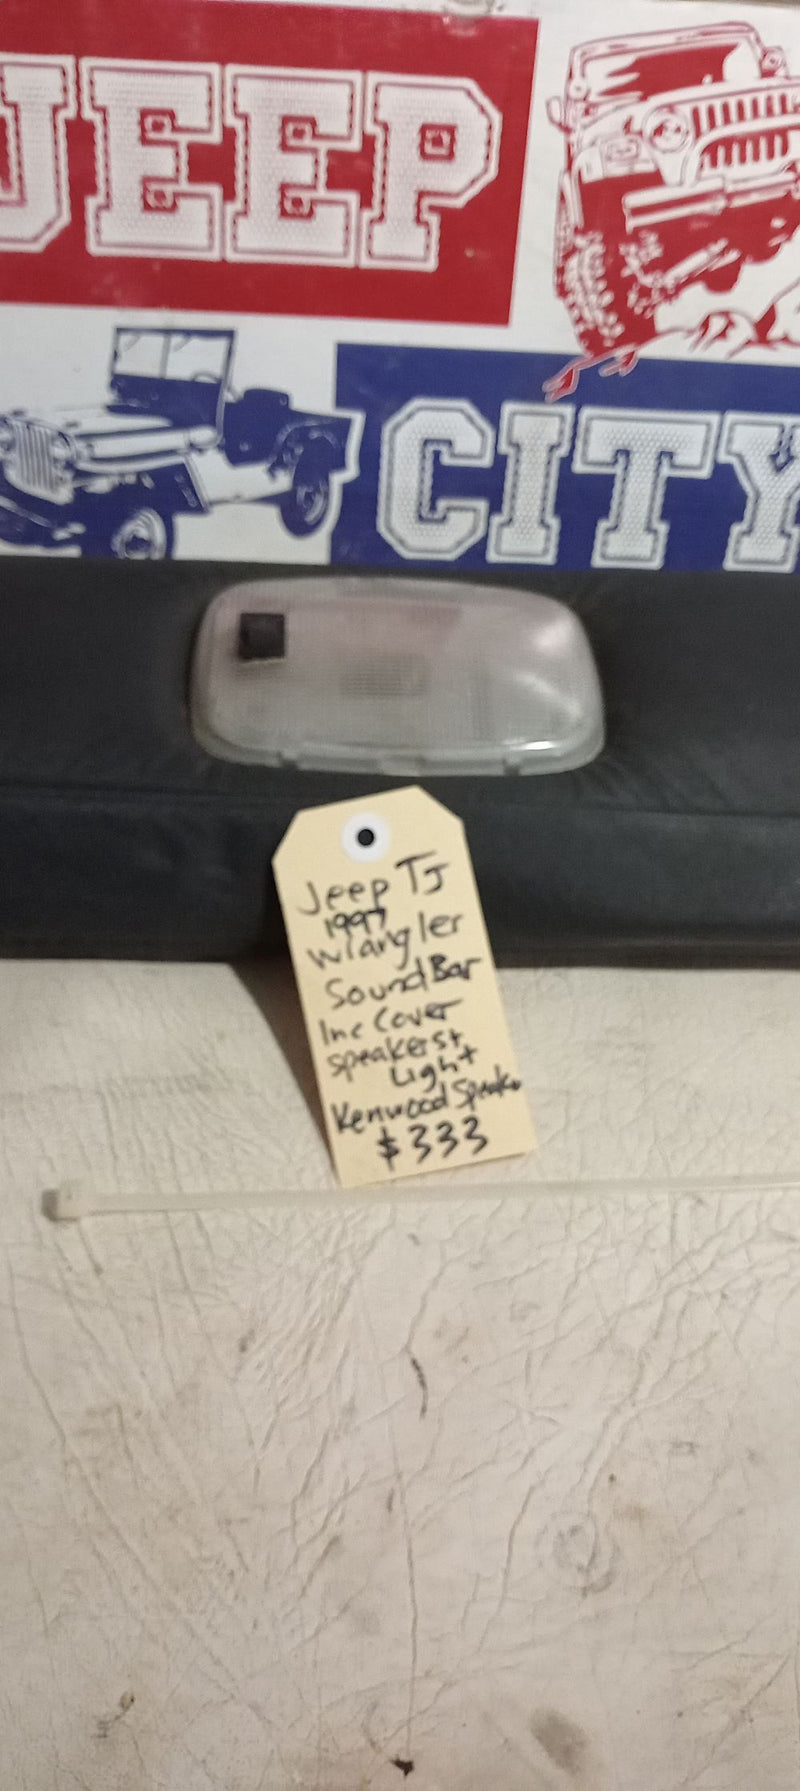 JEEP
CITY
Jeep TJ
1997
Wrangler
Sound Bar
Inc Cover
speakers+
Light
Kenwood Speake
$333